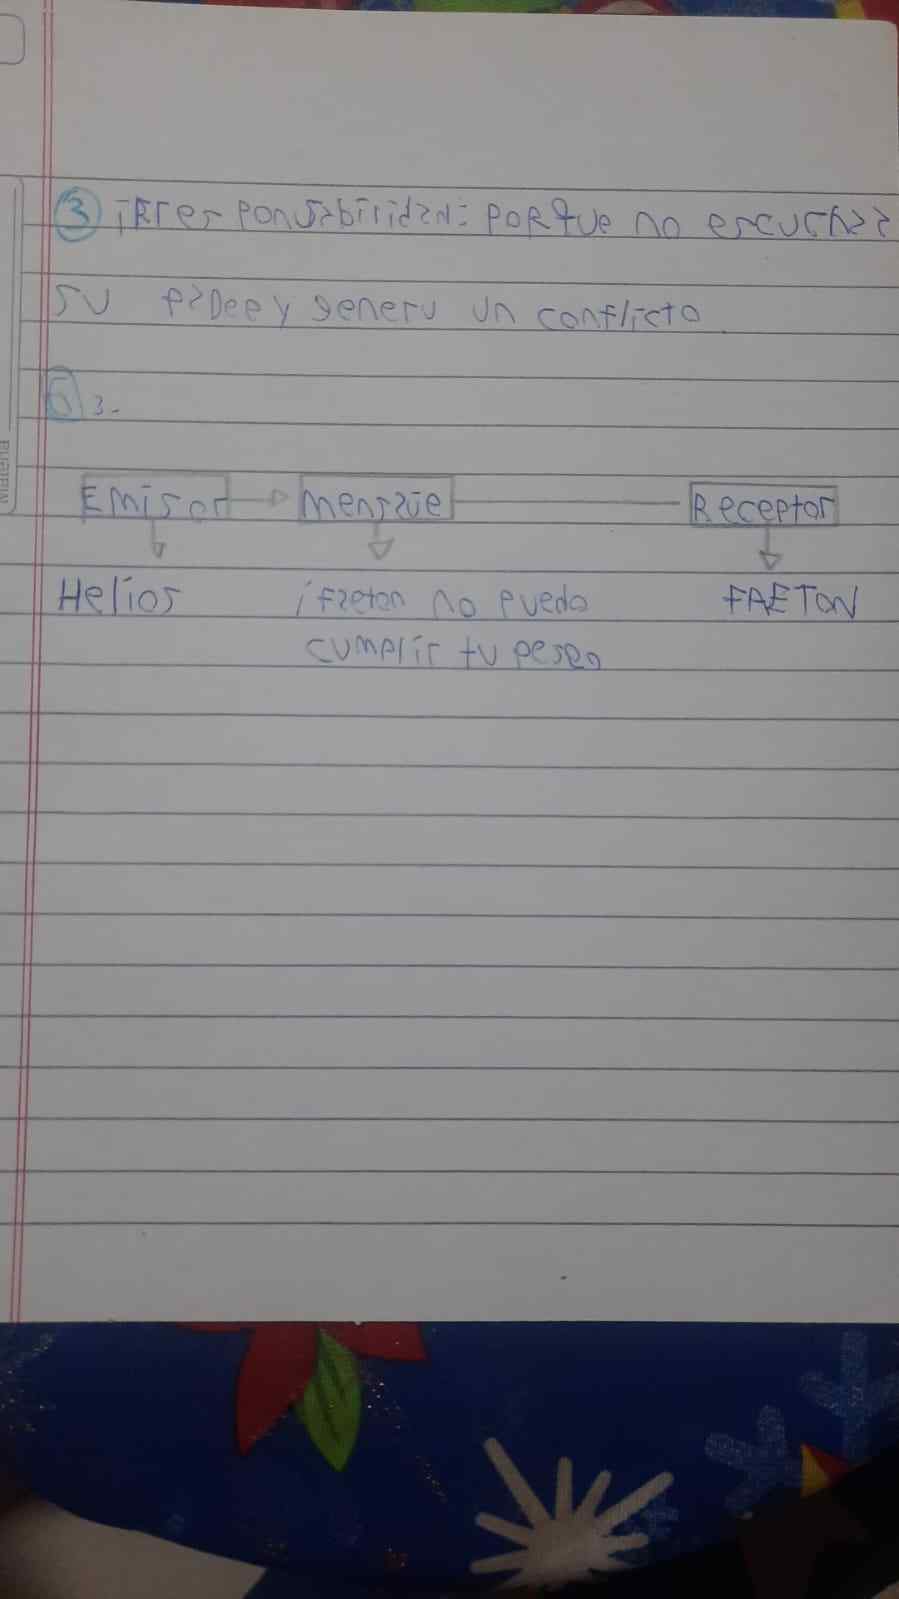 3 iRresponsabilidad: PORque no escucha a
su padre y generu un conflicto
6 3-
Emisor Mensaje Receptor
Helios ¡faeton no puedo FAETON
cumplir tu deseo